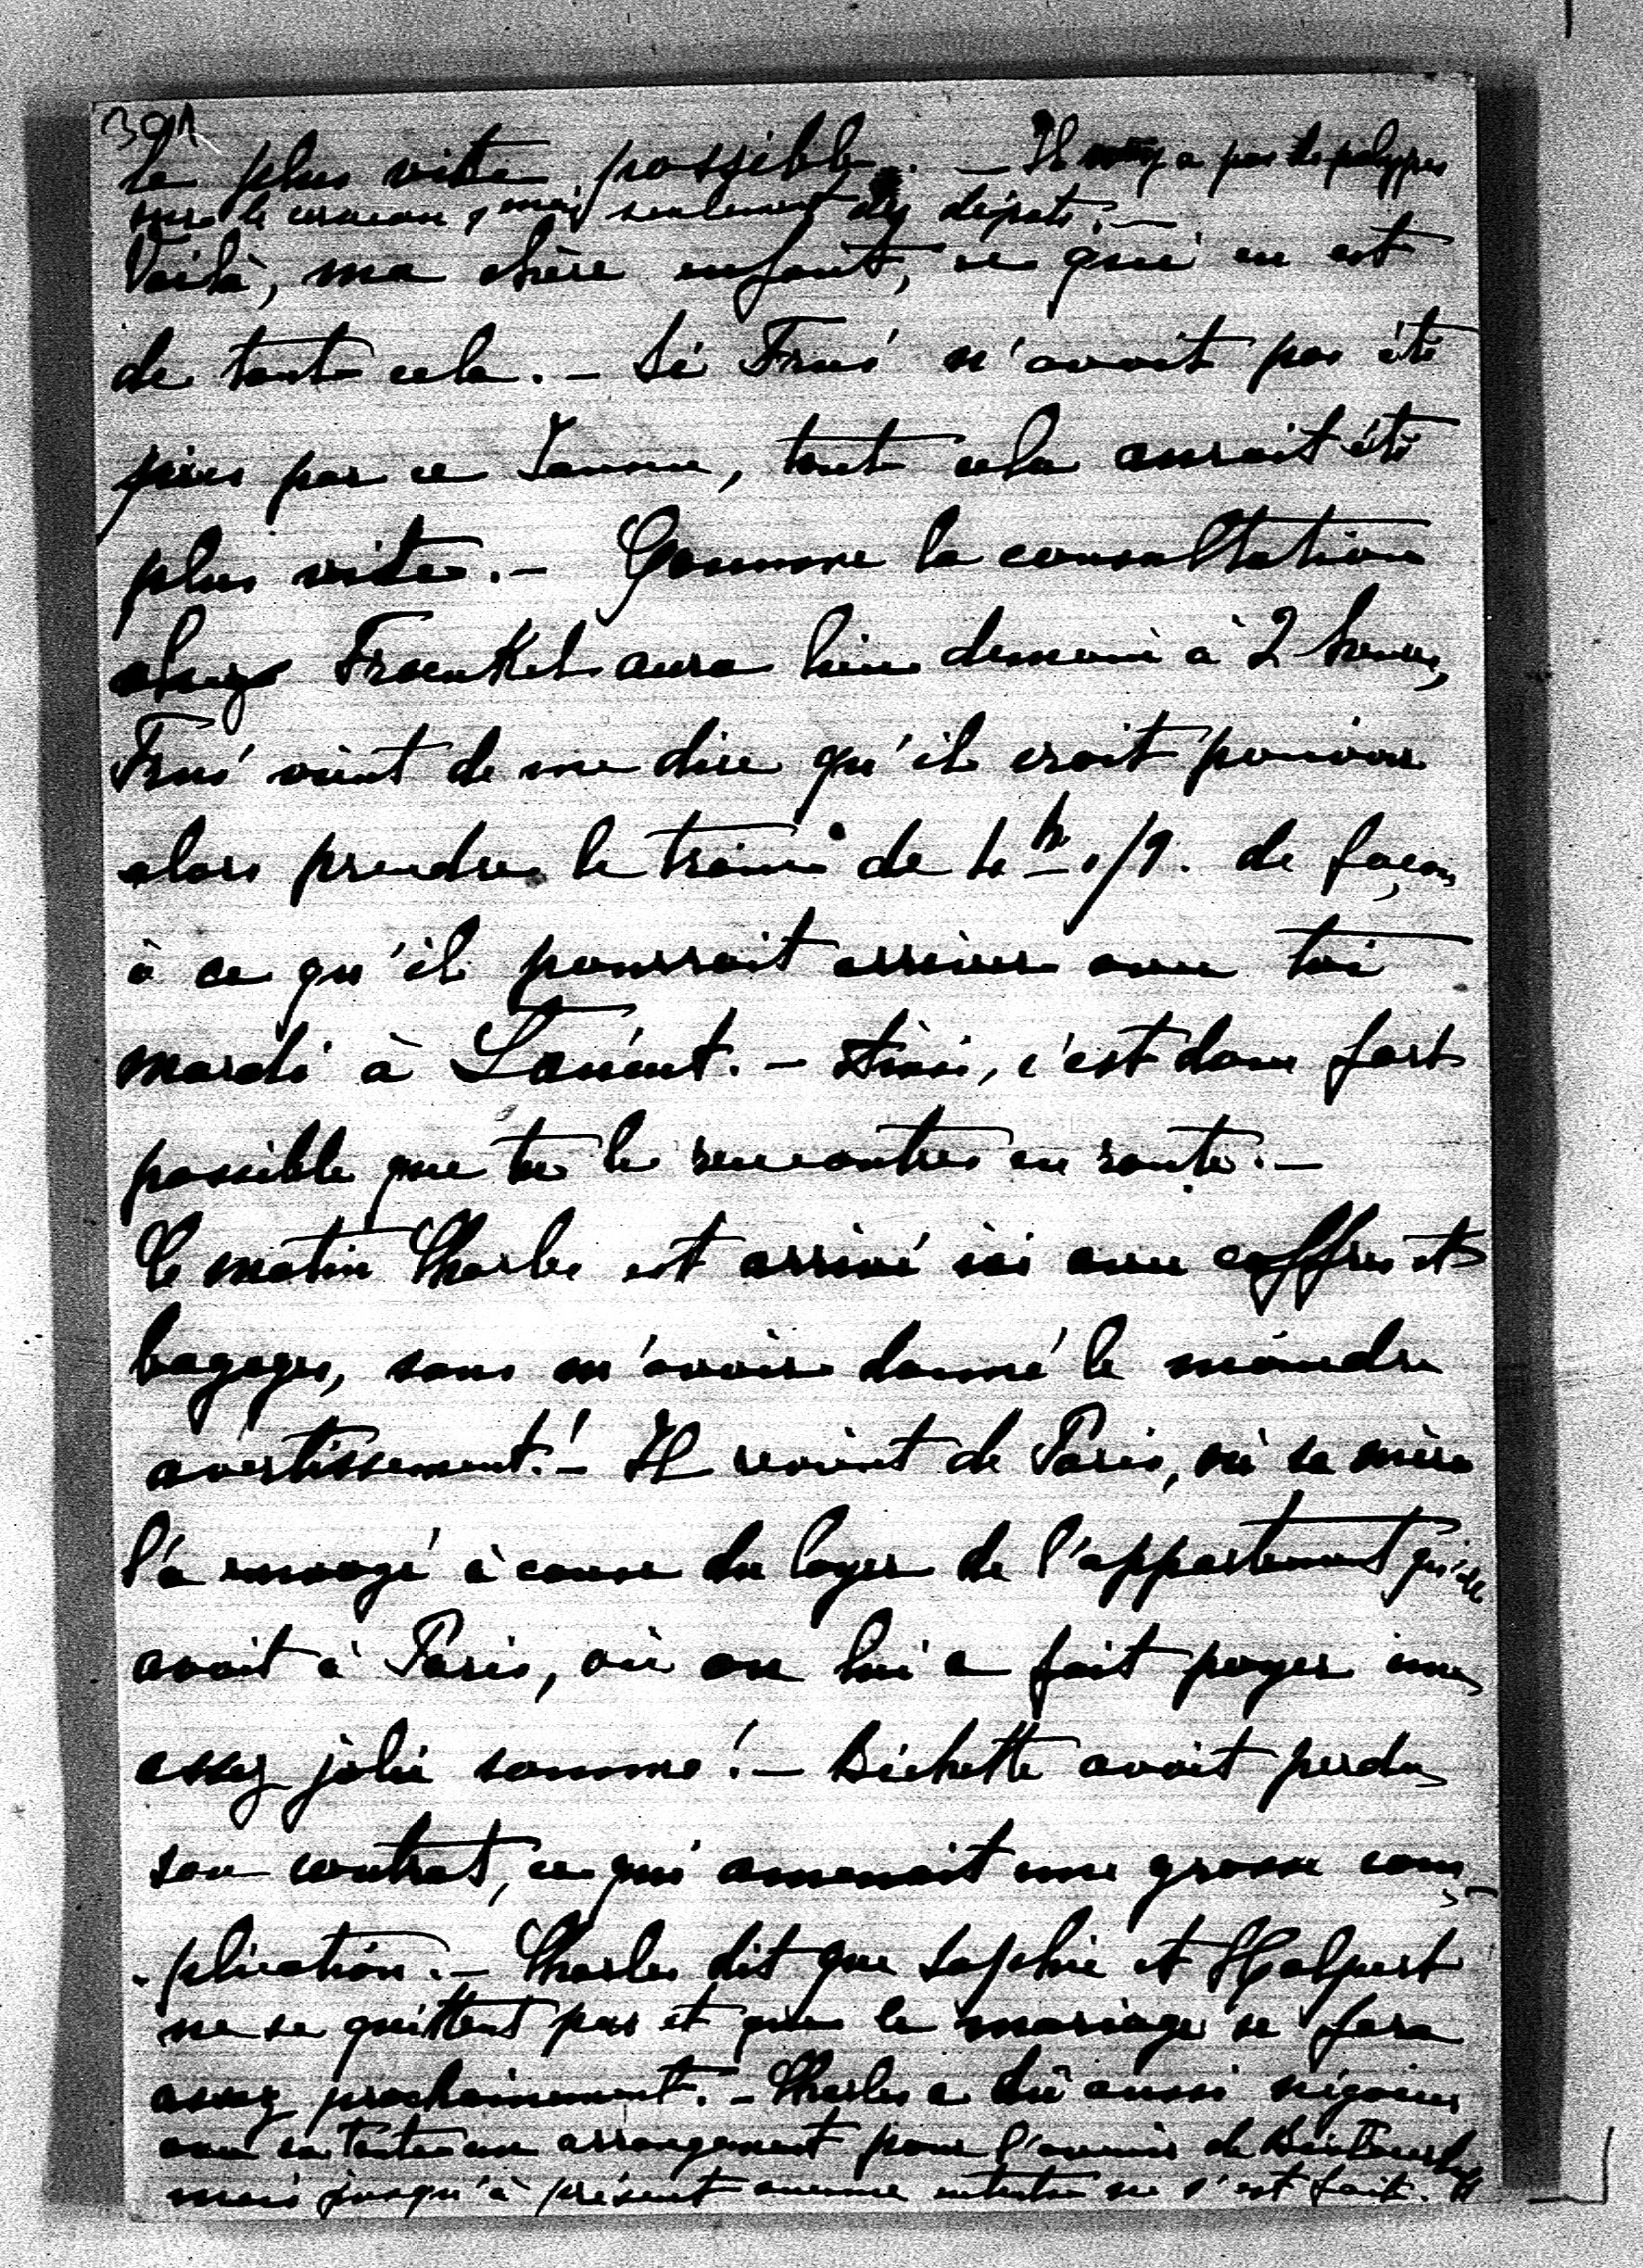 391
le plus vite possible. — Il n'y a pas de polypes
sur le cerveau, mais seulement des dépôts. —
Voilà, ma chère enfant, ce qui en est
de tout cela. — Si Fred n'avait pas été
pris par ce, tout cela aurait été
plus vite. — Comme la consultation
chez Fraenkel aura lieu demain à 2 heures,
Fred vient de me dire qu'il croit pouvoir
alors prendre le train de 4 h 1/2. de façon
à ce qu'il pourrait arriver avec toi
mardi à. — Ainsi, c'est donc fort
possible que tu le rencontres en route. —
Ce matin Charles est arrivé ici avec coffres et
bagages, sans m'avoir donné le moindre
avertissement! — Il revient de Paris, où sa mère
l'a envoyé à cause du loyer de l'appartement qu'elle
avait à Paris, où on lui a fait payer une
assez jolie somme! — Bichette avait perdu
son contrat, ce qui amenait une grosse com-
-plication. — Charles dit que Sophie et Halpert
ne se quittent pas et que le mariage se fera
assez prochainement. — Charles a dû aussi négocier
avec sa tante un arrangement pour l'avenir de
mais jusqu'à présent aucune entente ne s'est faite.